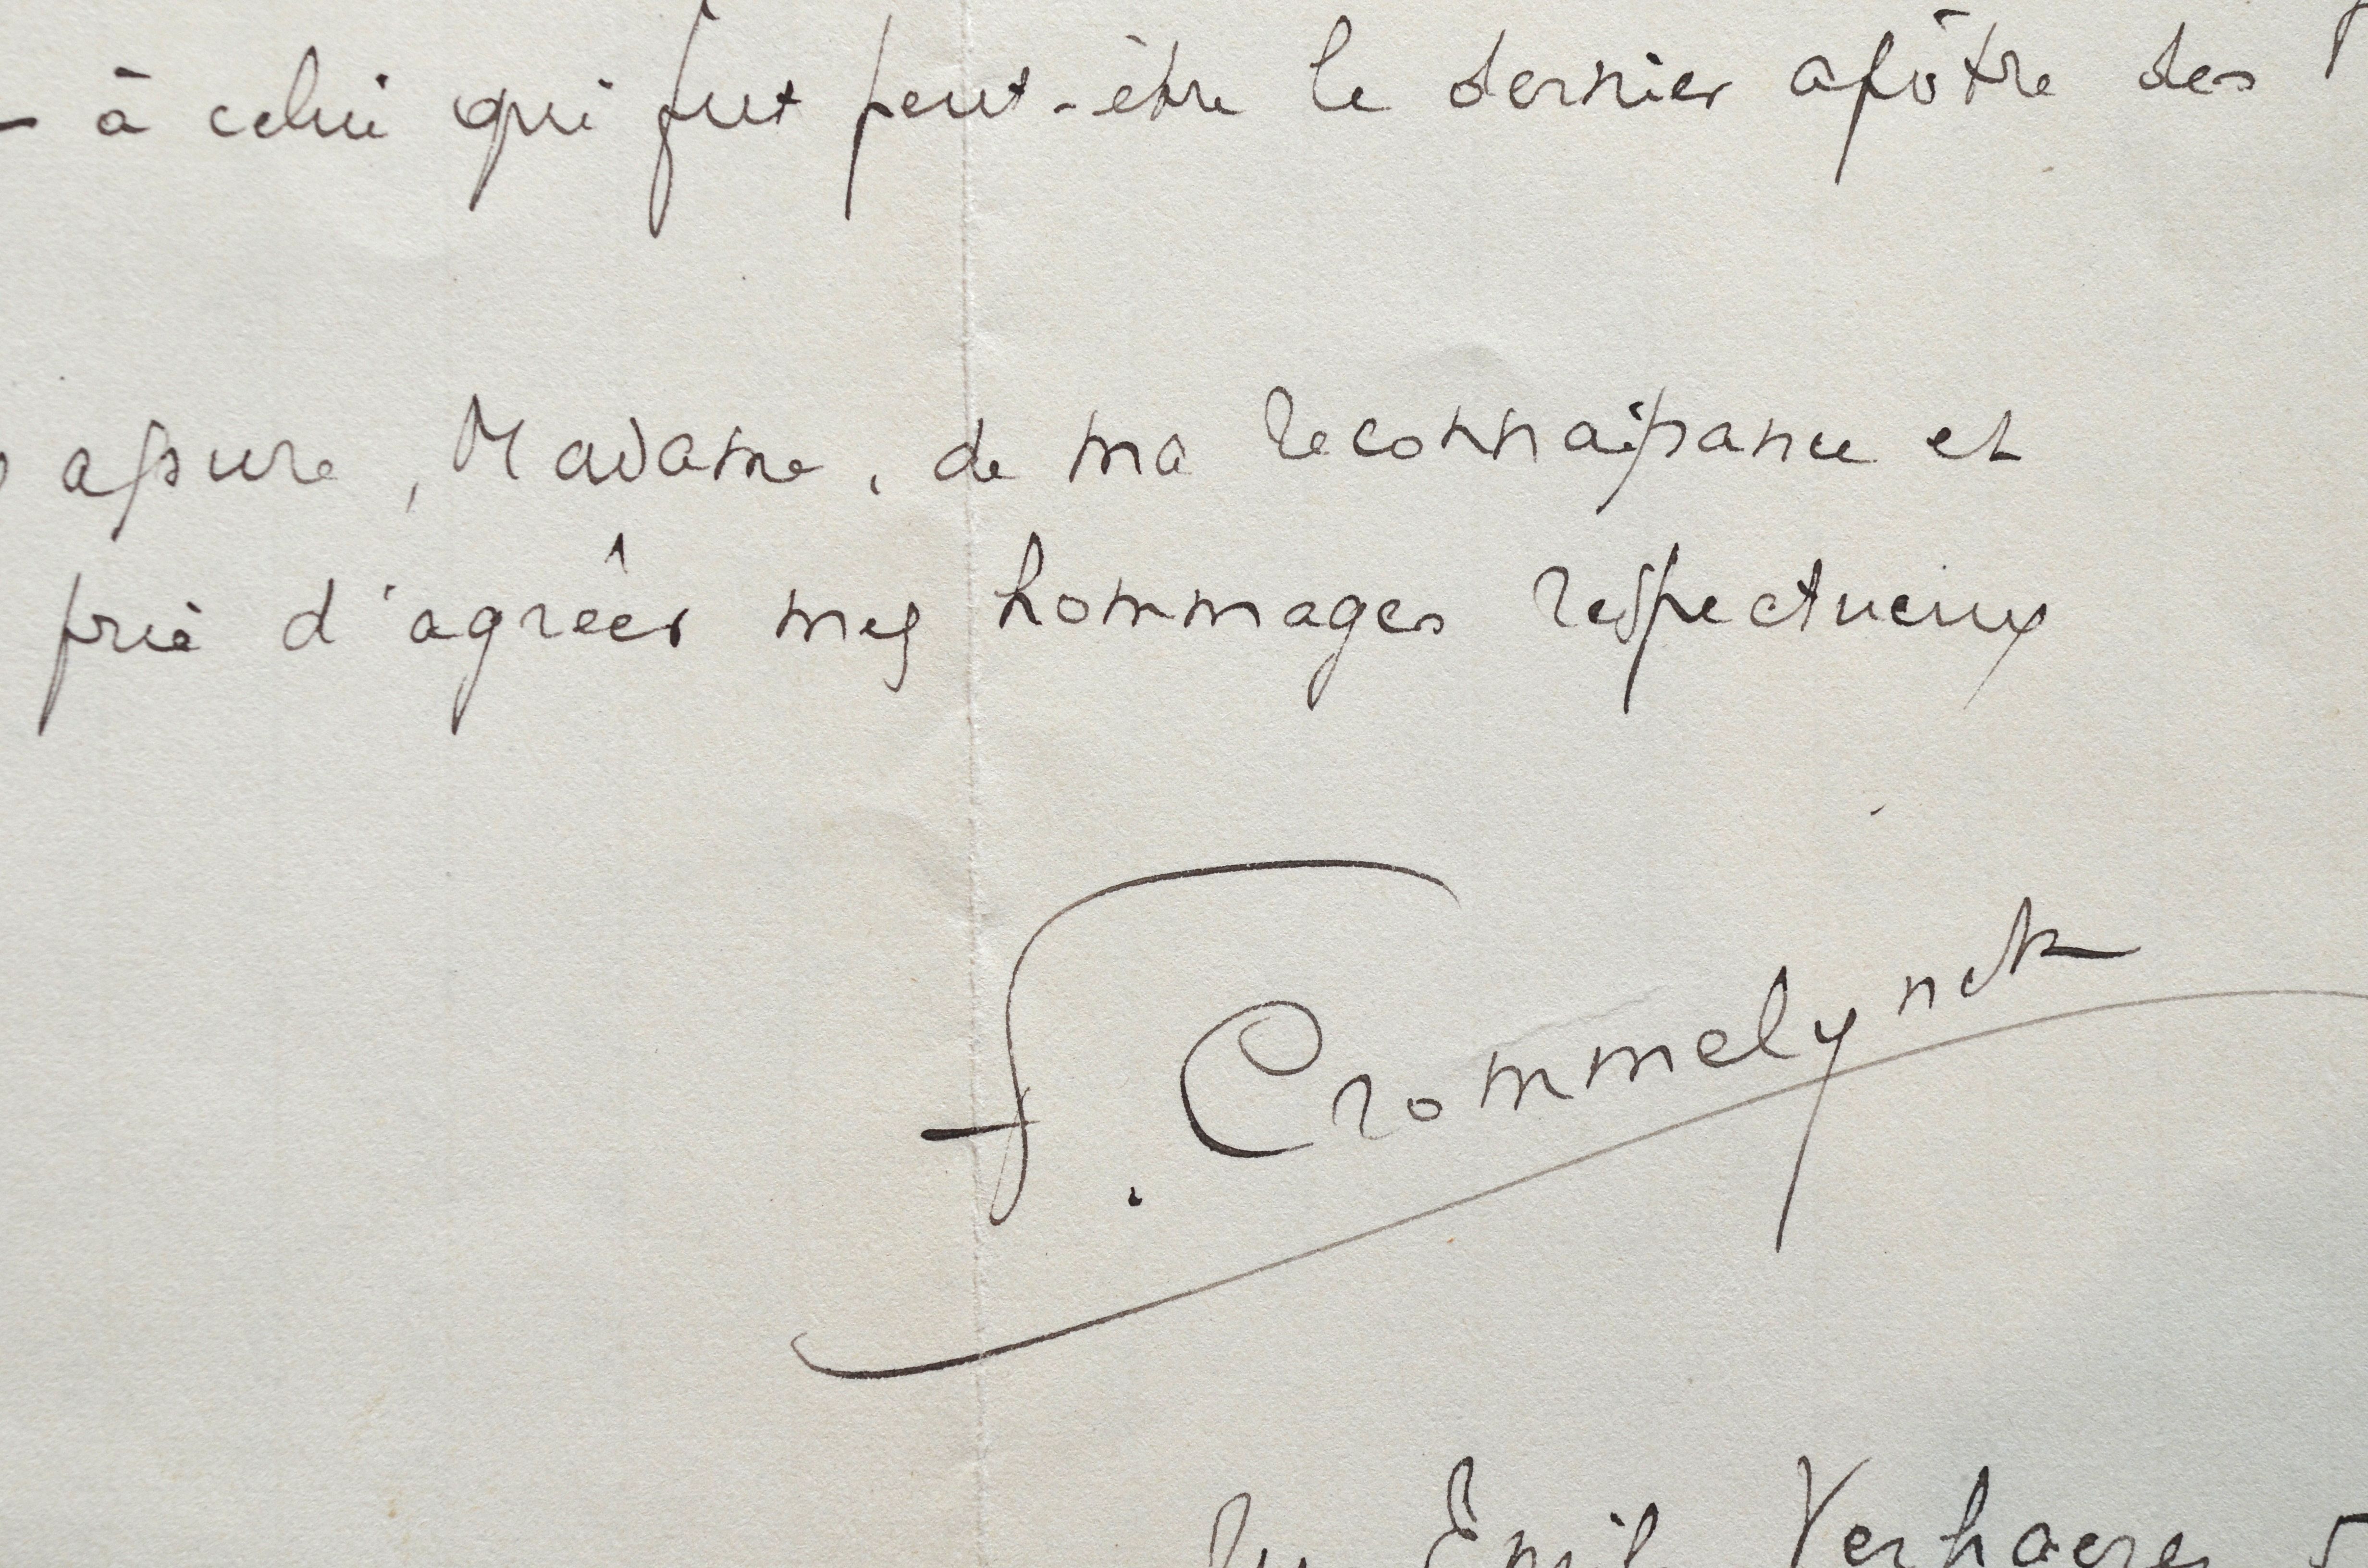 à celui qui fut peut-être le dernier apôtre des
assure, Madame, de ma reconnaissance et
prie d'agréer mes hommages respectueux
F. Crommelynck
Emil Verhaeren